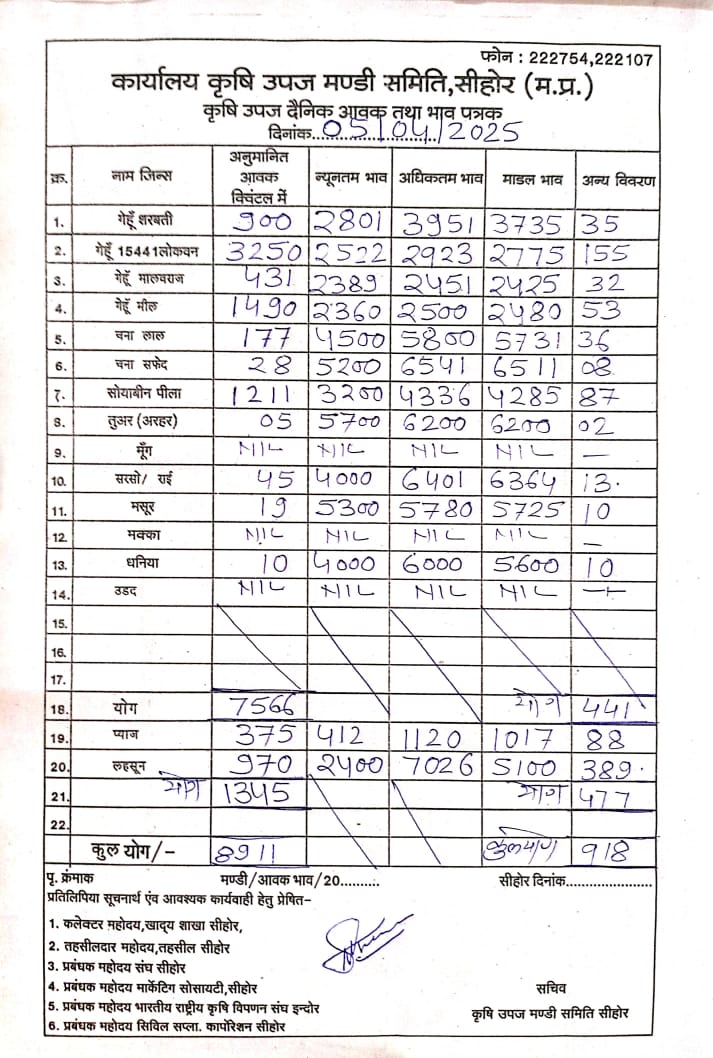 फोन : 222754,222107
कार्यालय कृषि उपज मण्डी समिति,सीहोर (म.प्र.)
कृषि उपज दैनिक आवक तथा भाव पत्रक
दिनांक...05/04/2025
क्र. नाम जिन्स अनुमानित आवक क्विंटल में न्यूनतम भाव अधिकतम भाव माडल भाव अन्य विवरण
1. गेहूँ शरबती 900 2801 3951 3735 35
2. गेहूँ 15441लोकवन 3250 2522 2923 2775 155
3. गेहूँ मालवराज 431 2389 2451 2425 32
4. गेहूँ मील 1490 2360 2500 2480 53
5. चना लाल 177 4500 5800 5731 36
6. चना सफेद 28 5200 6541 6511 08
7. सोयाबीन पीला 1211 3200 4336 4285 87
8. तुअर (अरहर) 05 5700 6200 6200 02
9. मूँग NIL NIL NIL NIL —
10. सरसो/ राई 45 4000 6401 6364 13.
11. मसूर 19 5300 5780 5725 10
12. मक्का NIL NIL NIL NIL —
13. धनिया 10 4000 6000 5600 10
14. उडद NIL NIL NIL NIL —
15.
16.
17.
18. योग 7566 योग 441
19. प्याज 375 412 1120 1017 88
20. लहसून 970 2400 7026 5100 389.
21. योग 1345 योग 477
22.
कुल योग/- 8911 कुल योग 918
पृ. क्रंमाक मण्डी/आवक भाव/20.......... सीहोर दिनांक......................
प्रतिलिपिया सूचनार्थ एंव आवश्यक कार्यवाही हेतु प्रेषित-
1. कलेक्टर महोदय,खादृय शाखा सीहोर,
2. तहसीलदार महोदय,तहसील सीहोर
3. प्रबंधक महोदय संघ सीहोर
4. प्रबंधक महोदय मार्केटिंग सोसायटी,सीहोर
सचिव
5. प्रबंधक महोदय भारतीय राष्ट्रीय कृषि विपणन संघ इन्दोर
कृषि उपज मण्डी समिति सीहोर
6. प्रबंधक महोदय सिविल सप्ला. कार्पोरेशन सीहोर